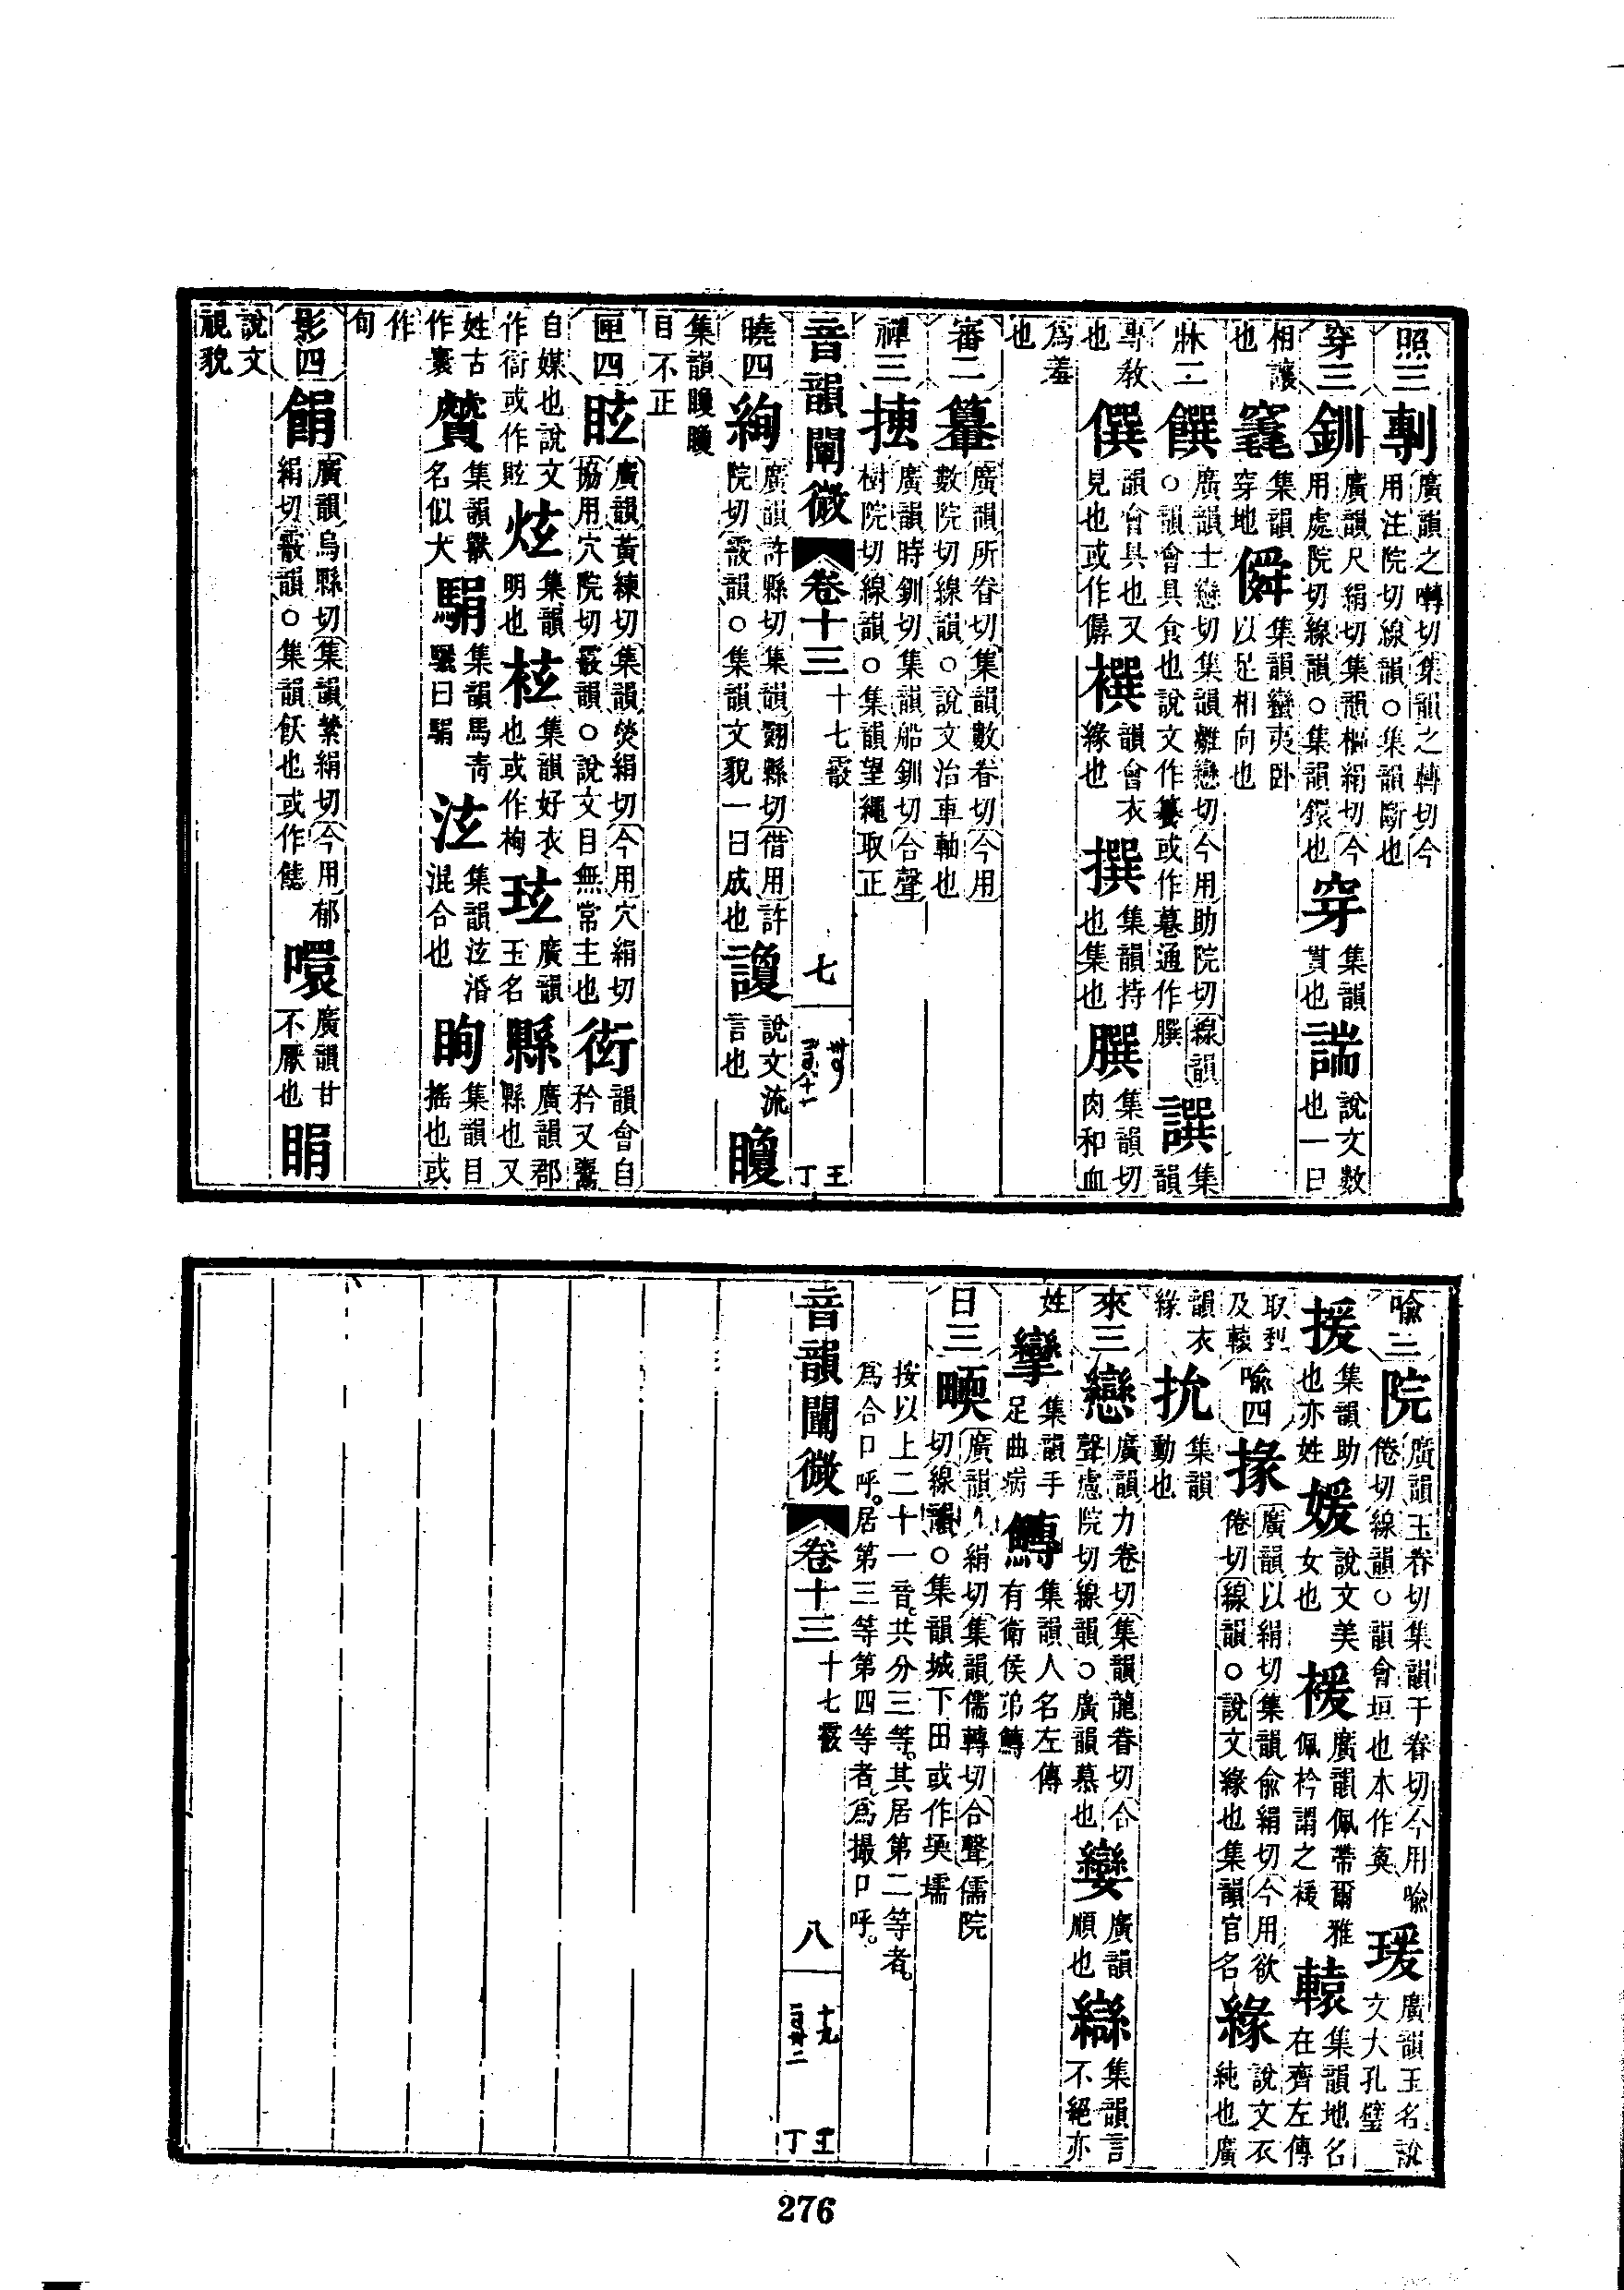 照三 剸 廣韻之囀切集韻之轉切今用注院切線韻○集韻斷也
穿三 釧 廣韻尺絹切集韻樞絹切今用處院切線韻○集韻鐶也 穿 集韻貫也 諯 說文數也一曰
相讓也 竁 集韻穿地 僢 集韻蠻夷臥以足相向也
牀二 饌 廣韻士戀切集韻雛戀切今用助院切線韻○韻會具食也說文作籑或作㢲通作膞 譔 集韻
專教也 僎 韻會具也又見也或作僝 襈 韻會衣緣也 撰 集韻持也集也 膞 集韻切肉和血
爲羞也
審二 䉵 廣韻所眷切集韻數眷切今用數院切線韻○說文治車軸也
禪三 㨷 廣韻時釧切集韻船釧切合聲樹院切線韻○集韻望繩取正
音韻闡微 卷十三 十七霰 七
曉四 絢 廣韻許縣切集韻翾縣切借用許院切霰韻○集韻文貌一曰成也 讂 說文流言也 矎
集韻矎矎目不正
匣四 眩 廣韻黃練切集韻熒絹切今用穴絹切協用穴院切霰韻○說文目無常主也 衒 韻會自矜又鬻
自媒也說文作衙或作眩 炫 集韻明也 袨 集韻好衣也或作袧 玹 廣韻玉名 縣 廣韻郡縣也又
姓古作寰 贙 集韻獸名似犬 駽 集韻馬青驪曰駽 泫 集韻泫涽混合也 眴 集韻目搖也或
作旬
影四 餶 廣韻烏縣切集韻縈絹切今用郁絹切霰韻○集韻飫也或作䭇 噮 廣韻甘不厭也 睊
說文視貌
喻三 院 廣韻王眷切集韻于眷切今用喻倦切線韻○韻會垣也本作寏 瑗 廣韻玉名說文大孔璧
援 集韻助也亦姓 媛 說文美女也 褑 廣韻佩帶爾雅佩衿謂之褑 轅 集韻地名在齊左傳
取犁及轅 喻四 掾 廣韻以絹切集韻俞絹切今用欲倦切線韻○說文緣也集韻官名 緣 說文衣純也廣
韻衣緣 抁 集韻動也
來三 戀 廣韻力卷切集韻龍眷切合聲慮院切線韻○廣韻慕也 孌 廣韻順也 䜌 集韻言不絕亦
姓 攣 集韻手足曲病 鱄 集韻人名左傳有衛侯弟鱄
日三 㬉 廣韻人絹切集韻儒轉切合聲儒院切線韻○集韻城下田或作堧壖
按以上二十一音共分三等其居第二等者爲合口呼居第三等第四等者爲撮口呼
音韻闡微 卷十三 十七霰 八
276